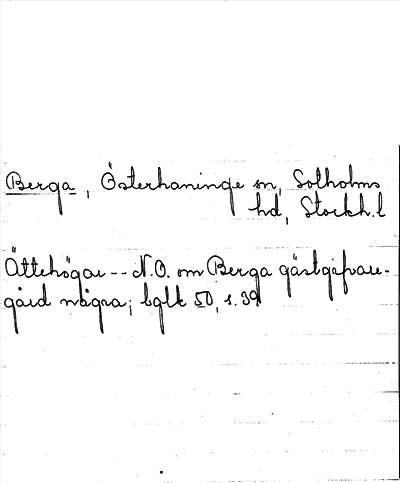 Berga, Österhaninge sn, Sotholms
hd, Stockh.l
Ättehögar -- N.O. om Berga gästgifvare-
gård några; bglk 50, s. 39